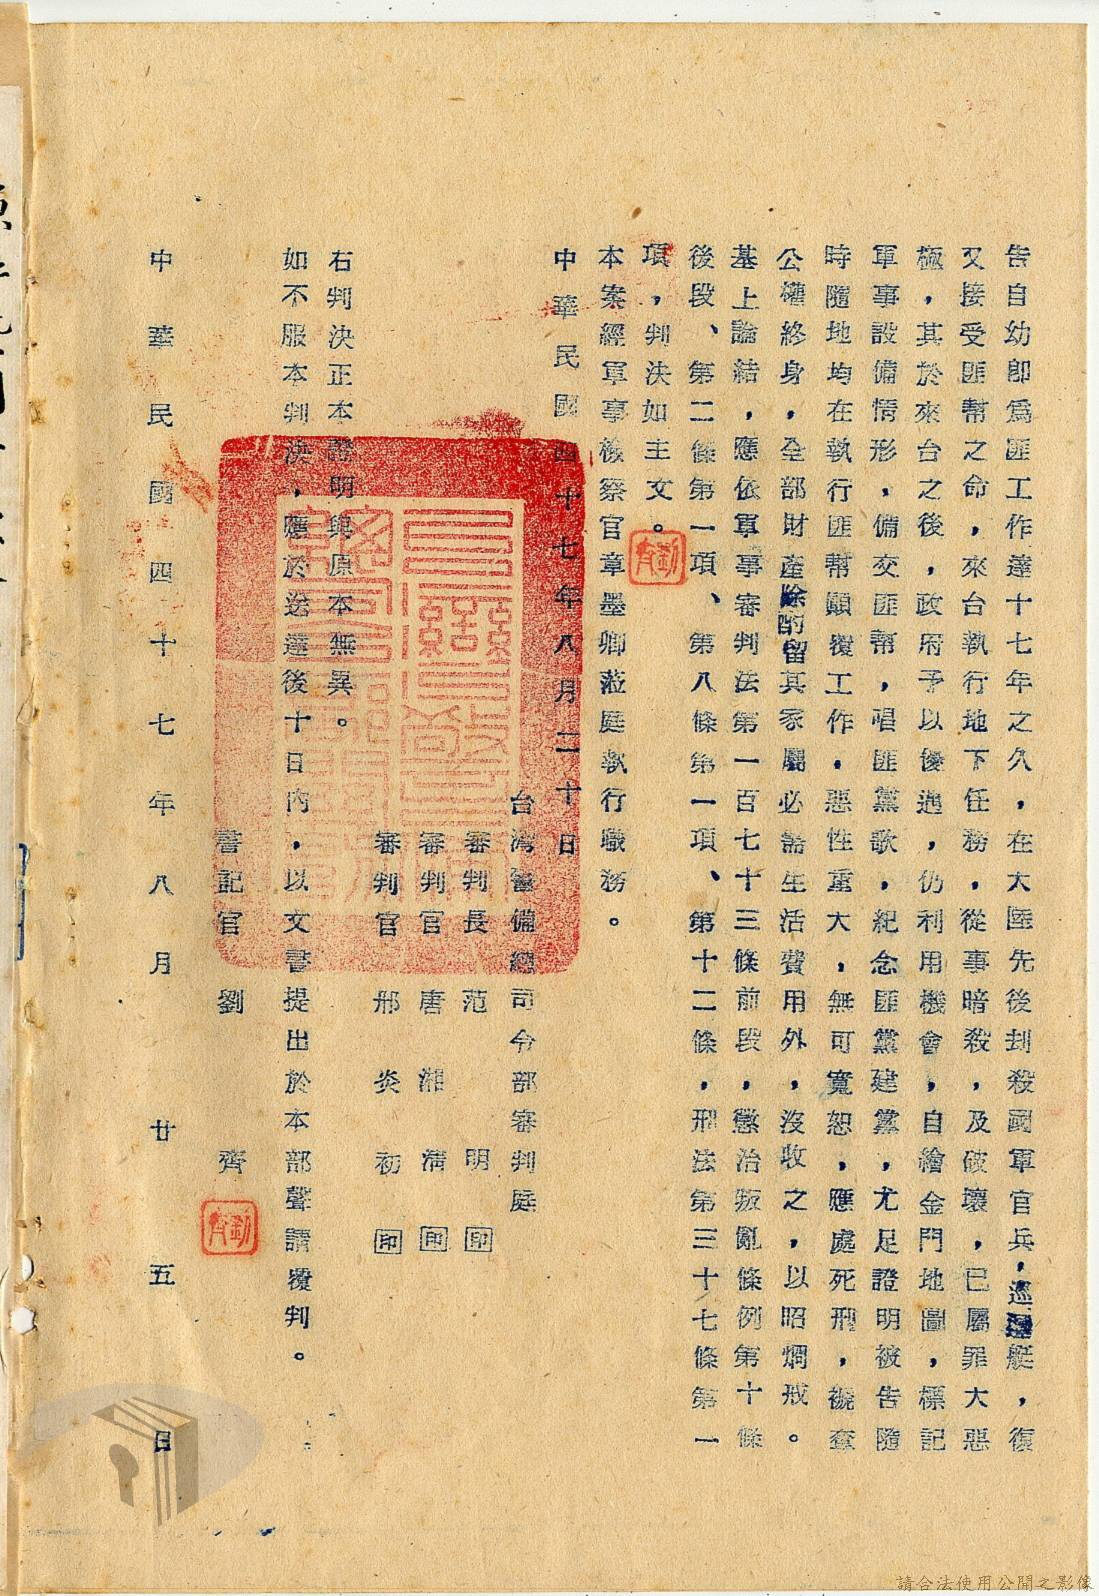 告自幼卽爲匪工作達十七年之久，在大陸先後刦殺國軍官兵，巡邏艇，復
又接受匪幫之命，來台執行地下任務，從事暗殺，及破壞，已屬罪大惡
極，其於來台之後，政府予以優遇，仍利用機會，自繪金門地圖，標記
軍事設備情形，備交匪幫，唱匪黨歌，紀念匪黨建黨，尤足證明被告隨
時隨地均在執行匪幫顚覆工作，惡性重大，無可寬恕，應處死刑，褫奪
公權終身，全部財產除酌留其家屬必需生活費用外，沒收之，以昭烱戒。
基上論結，應依軍事審判法第一百七十三條前段，懲治叛亂條例第十條
後段、第二條第一項、第八條第一項、第十二條，刑法第三十七條第一
項，判決如主文。
本案經軍事檢察官章墨卿蒞庭執行職務。
中華民國四十七年八月二十日
台灣警備總司令部審判庭
審判長 范 明 印
審判官 唐湘清 印
審判官 邢炎初 印
右判決正本證明與原本無異。
如不服本判決，應於送達後十日內，以文書提出於本部聲請覆判。
書記官 劉 齊
中華民國四十七年八月廿五日
劉齊
劉齊
請合法使用公開之影像